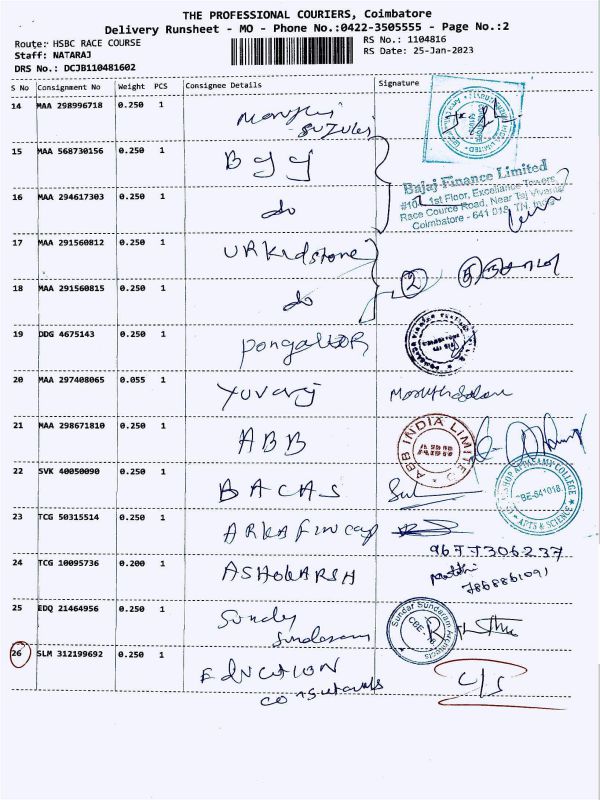 THE PROFESSIONAL COURIERS, Coimbatore
Delivery Runsheet - MO - Phone No.:0422-3505555 - Page No.:2
Route: HSBC RACE COURSE
RS No.: 1104816
Staff: NATARAJ
RS Date: 25-Jan-2023
DRS No.: DCJB110481602
S No Consignment No Weight PCS Consignee Details Signature
14 MAA 298996718 0.250 1
15 MAA 568730156 0.250 1
Bajaj Finance Limited
#104, 1st Floor, Excellance Towers,
16 MAA 294617303 0.250 1 do
Race Cource Road, Near Taj Vivanta
Coimbatore - 641 018, TN, India
17 MAA 291560812 0.250 1 URKidstone
18 MAA 291560815 0.250 1 do 2
19 DDG 4675143 0.250 1
20 MAA 297408065 0.055 1 Yuvaraj
21 MAA 298671810 0.250 1 ABB
ABB INDIA LIMITED
22 SVK 40050090 0.250 1 BACAS
BISHOP APPASAMY COLLEGE
CBE-641018
ARTS & SCIENCE
23 TCG 50315514 0.250 1 ARKA FINCAP
9677306237
24 TCG 10095736 0.200 1 ASHOKARSH
7868861091
25 EDQ 21464956 0.250 1 Sundar
Sundaram
Sundar Sundaram Architects
CBE-
26 SLM 312199692 0.250 1 EDUCTION
consultants
C/S